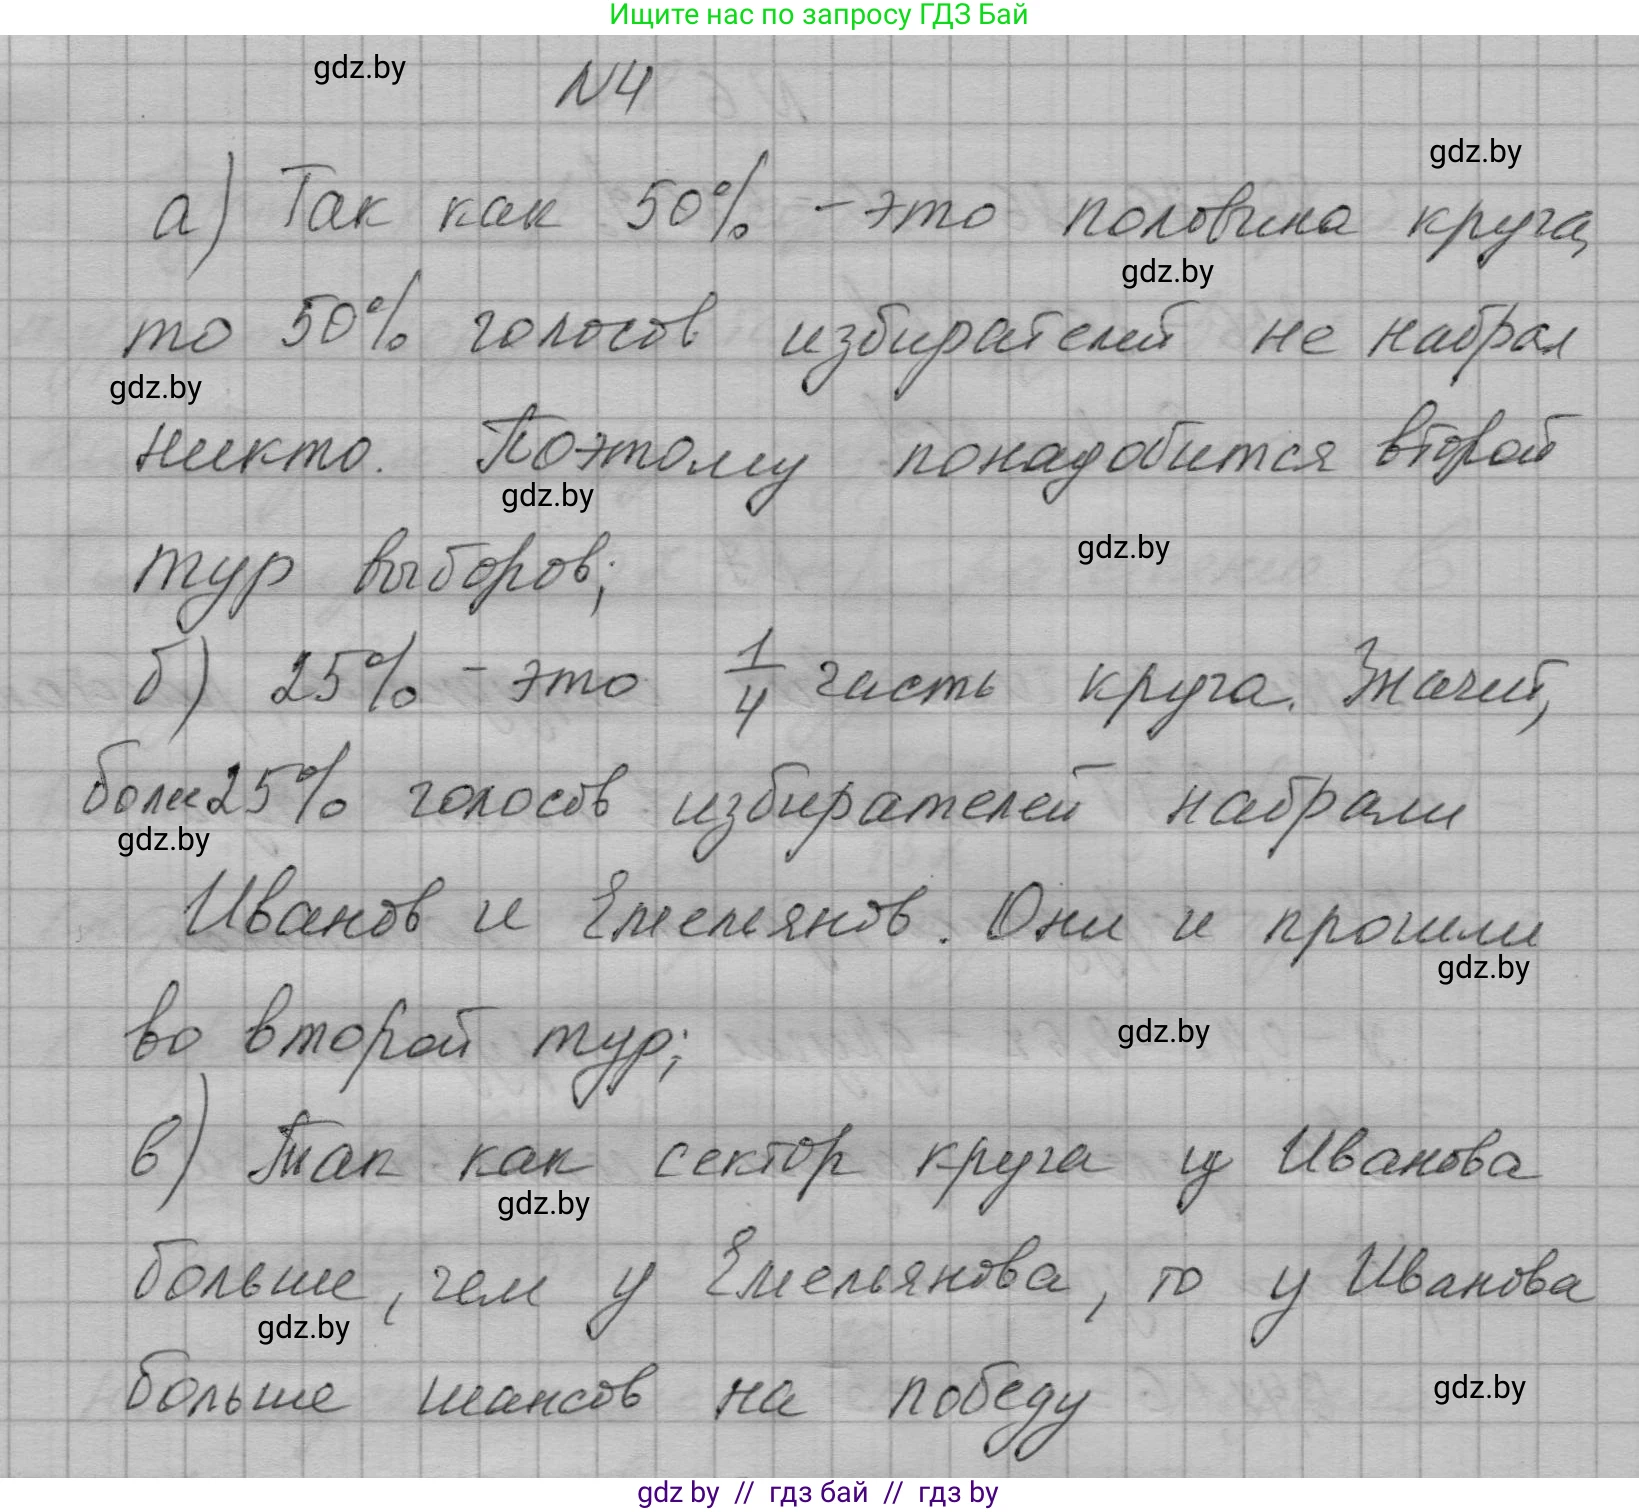 Ищите нас по запросу ГДЗ Бай
gdz.by
N4
gdz.by
а) Так как 50% - это половина круга,
gdz.by
то 50% голосов избирателей не набрал
gdz.by
никто. Поэтому понадобится второй
gdz.by
gdz.by
тур выборов;
б) 25% - это 1/4 часть круга. Значит,
более 25% голосов избирателей набрали
gdz.by
Иванов и Емельянов. Они и прошли
gdz.by
во второй тур;
gdz.by
в) Так как сектор круга у Иванова
gdz.by
больше, чем у Емельянова, то у Иванова
gdz.by
больше шансов на победу
gdz.by
gdz by // гдз бай // гдз by